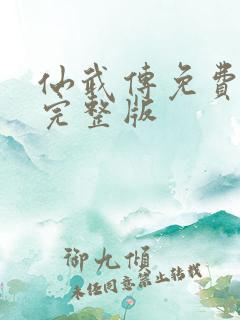 仙武传免費
完整版
御九倾
未经同意禁止转载